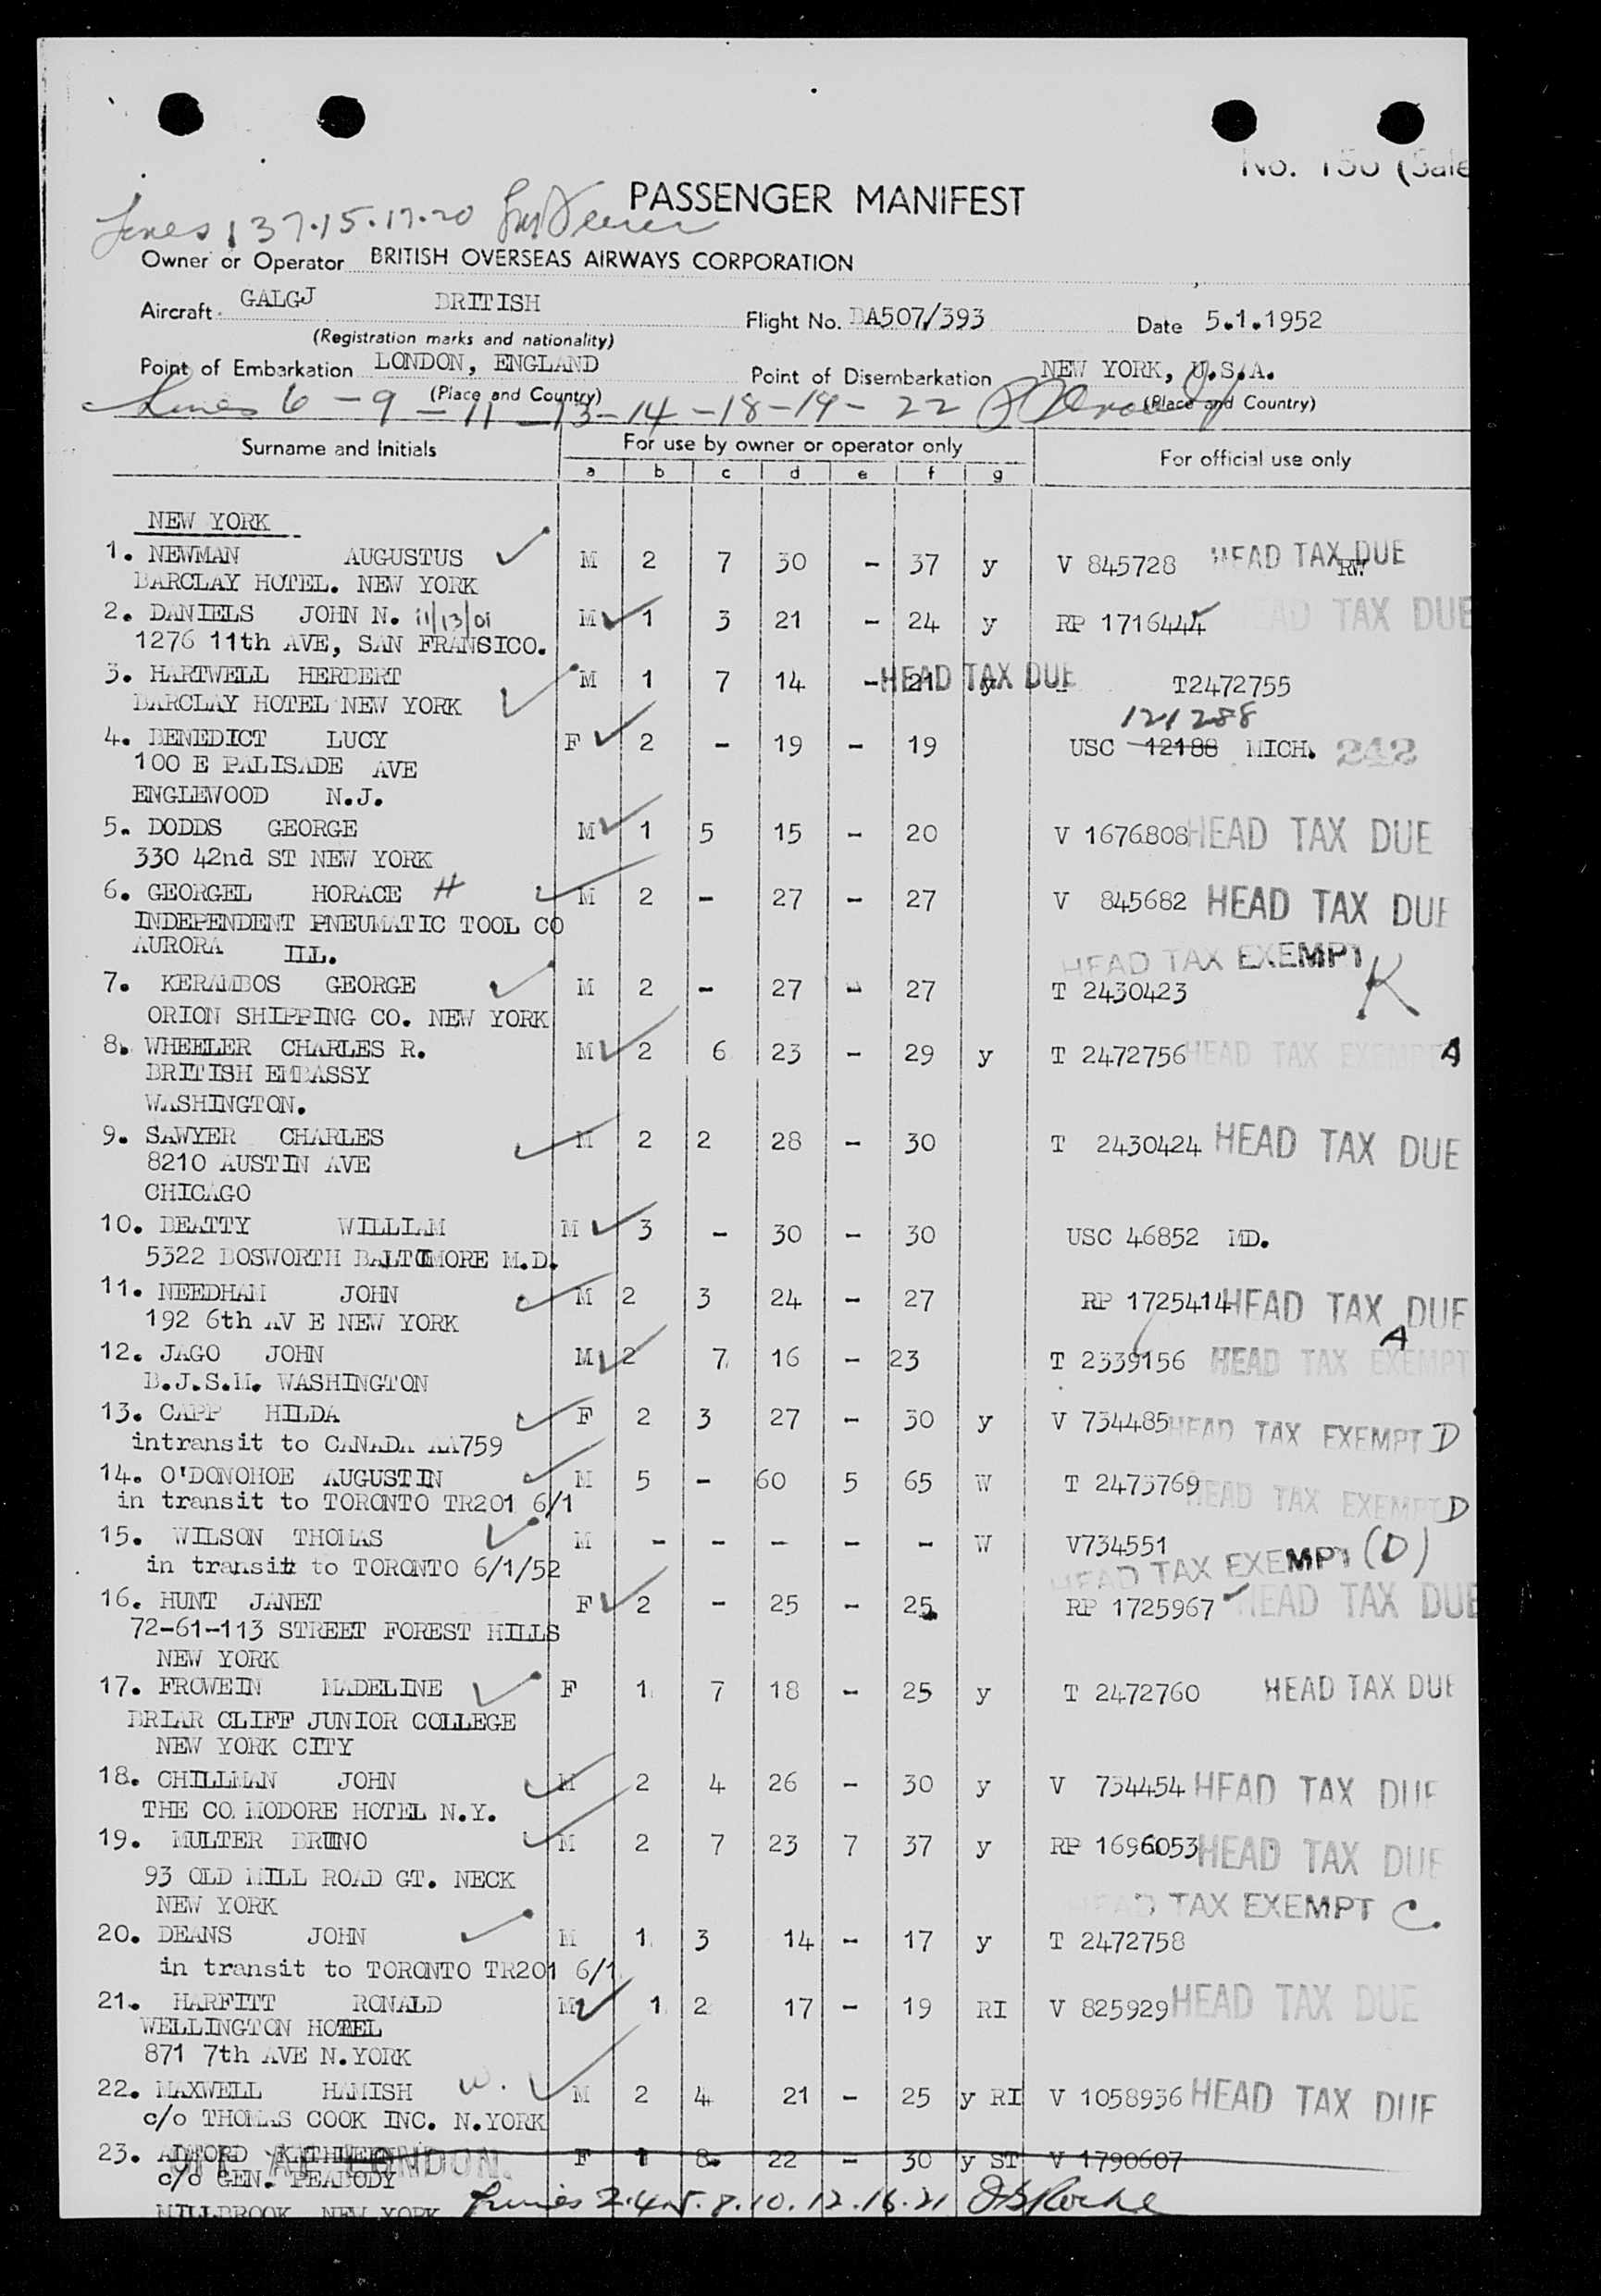 No. 150 (Sale
PASSENGER MANIFEST
Lines 1 3 7.15.17.20
Owner or Operator BRITISH OVERSEAS AIRWAYS CORPORATION
Aircraft GALGJ BRITISH Flight No. BA507/393 Date 5.1.1952
(Registration marks and nationality)
Point of Embarkation LONDON, ENGLAND Point of Disembarkation NEW YORK, U.S.A.
(Place and Country) (Place and Country)
Lines 6 - 9 - 11 - 13 - 14 - 18 - 19 - 22
Surname and Initials For use by owner or operator only For official use only
a b c d e f g
NEW YORK
1. NEWMAN AUGUSTUS M 2 7 30 - 37 y V 845728 HEAD TAX DUE RW
BARCLAY HOTEL. NEW YORK
2. DANIELS JOHN N. 11/13/01 M 1 3 21 - 24 y RP 1716444 HEAD TAX DUE
1276 11th AVE, SAN FRANSICO.
3. HARTWELL HERBERT M 1 7 14 - 21 y HEAD TAX DUE T2472755
BARCLAY HOTEL NEW YORK
121288
4. BENEDICT LUCY F 2 - 19 - 19 USC 12188 MICH. 242
100 E PALISADE AVE
ENGLEWOOD N.J.
5. DODDS GEORGE M 1 5 15 - 20 V 1676808 HEAD TAX DUE
330 42nd ST NEW YORK
6. GEORGEL HORACE H M 2 - 27 - 27 V 845682 HEAD TAX DUE
INDEPENDENT PNEUMATIC TOOL CO
AURORA ILL.
HEAD TAX EXEMPT K
7. KERAMBOS GEORGE M 2 - 27 - 27 T 2430423
ORION SHIPPING CO. NEW YORK
8. WHEELER CHARLES R. M 2 6 23 - 29 y T 2472756 HEAD TAX EXEMPT A
BRITISH EMBASSY
WASHINGTON.
9. SAWYER CHARLES M 2 2 28 - 30 T 2430424 HEAD TAX DUE
8210 AUSTIN AVE
CHICAGO
10. BEATTY WILLIAM M 3 - 30 - 30 USC 46852 MD.
5322 BOSWORTH BALTOMORE M.D.
11. NEEDHAM JOHN M 2 3 24 - 27 RP 1725414 HEAD TAX DUE
192 6th AV E NEW YORK
12. JAGO JOHN M 2 7 16 - 23 T 2339156 HEAD TAX EXEMPT A
B.J.S.M. WASHINGTON
13. CAPP HILDA F 2 3 27 - 30 y V 734485 HEAD TAX EXEMPT D
intransit to CANADA AA759
14. O'DONOHOE AUGUSTIN M 5 - 60 5 65 W T 2473769 HEAD TAX EXEMPT D
in transit to TORONTO TR201 6/1
15. WILSON THOMAS M - - - - - W V734551
in transit to TORONTO 6/1/52 HEAD TAX EXEMPT (D)
16. HUNT JANET F 2 - 25 - 25 RP 1725967 HEAD TAX DUE
72-61-113 STREET FOREST HILLS
NEW YORK
17. FROWEIN MADELINE F 1 7 18 - 25 y T 2472760 HEAD TAX DUE
BRIAR CLIFF JUNIOR COLLEGE
NEW YORK CITY
18. CHILLMAN JOHN M 2 4 26 - 30 y V 734454 HEAD TAX DUE
THE CO MODORE HOTEL N.Y.
19. MULTER BRUNO M 2 7 23 7 37 y RP 1696053 HEAD TAX DUE
93 OLD MILL ROAD GT. NECK
NEW YORK HEAD TAX EXEMPT C.
20. DEANS JOHN M 1 3 14 - 17 y T 2472758
in transit to TORONTO TR201 6/1
21. HARFITT RONALD M 1 2 17 - 19 RI V 825929 HEAD TAX DUE
WELLINGTON HOTEL
871 7th AVE N.YORK
22. MAXWELL HAMISH W. M 2 4 21 - 25 y RI V 1058936 HEAD TAX DUE
c/o THOMAS COOK INC. N.YORK
23. KATHLEEN F 1 8 22 - 30 y ST V 1790607
OFF AT LONDON.
c/o GEN. PEABODY
MILLBROOK NEW YORK
Lines 2.4.5.8.10.12.16.21